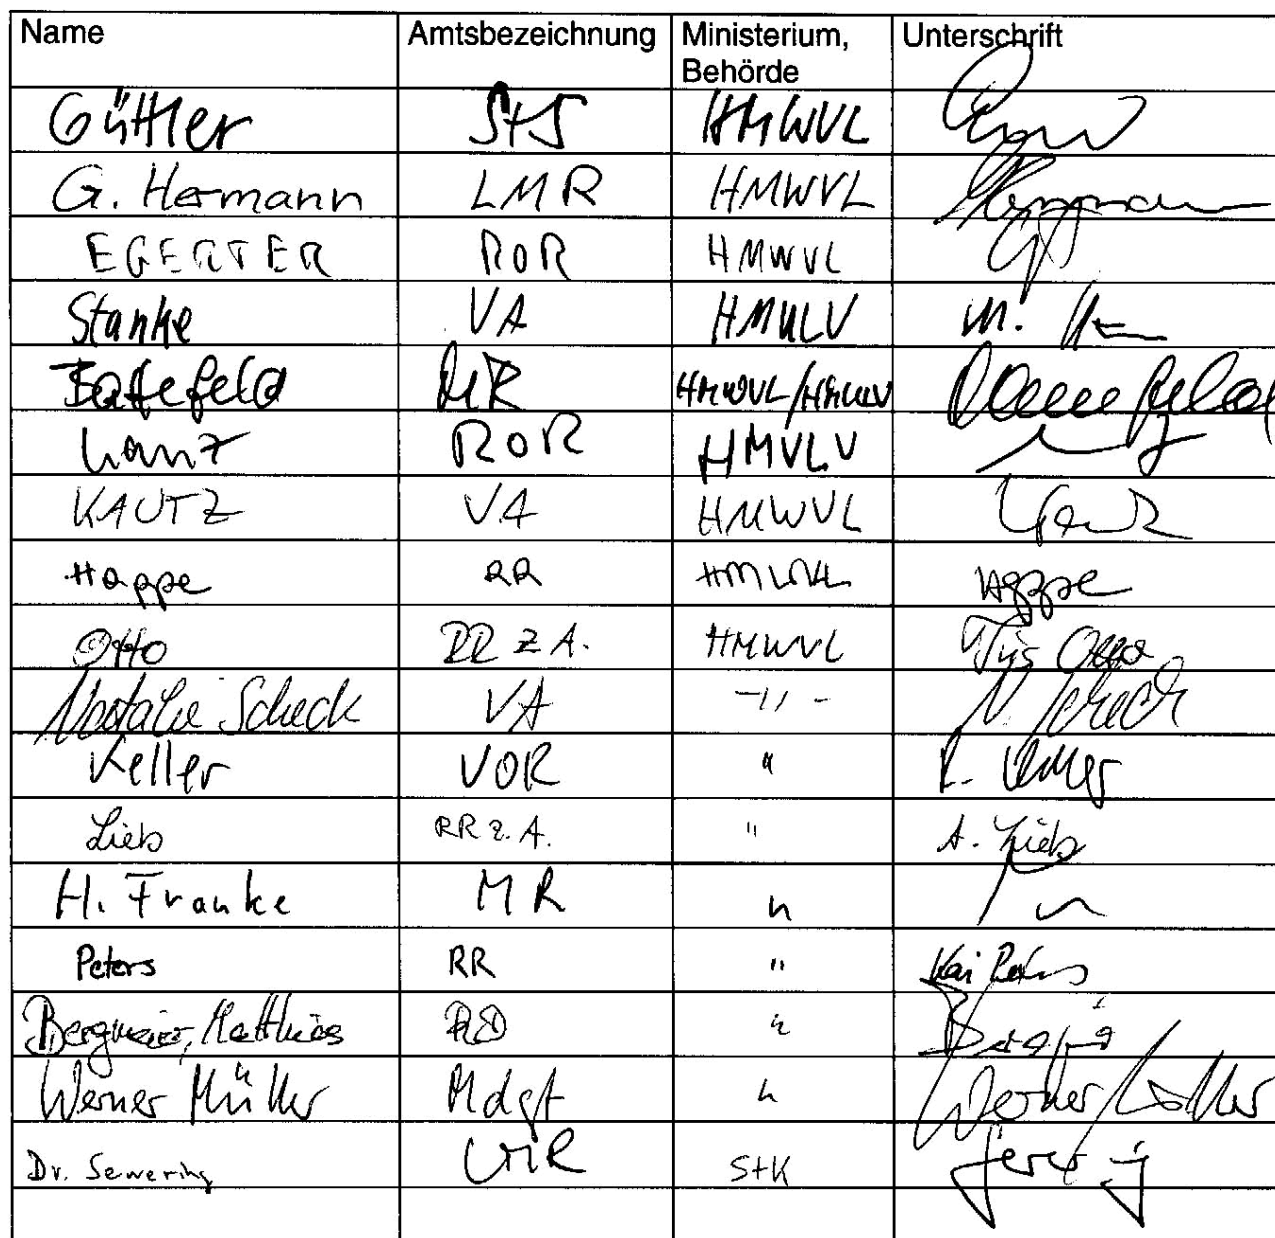 Name Amtsbezeichnung Ministerium, Behörde Unterschrift
Güttler StS HMWVL
G. Hermann LMR HMWVL
EGERTER ROR HMWVL
Stanke VA HMULV M.
MR HMWVL/HMULV
Lanz ROR HMULV
KAUTZ VA HMWVL
Hoppe RR HMWVL Hoppe
Otto RR z A. HMWVL Otto
Natalie Scheck VA -"- N. Scheck
Keller VOR " R. Keller
Lieb RR z. A. " A. Lieb
H. Franke MR "
Peters RR " Kai Peters
Bergmeier, Matthias RD "
Werner Müller Mdgt " Werner Müller
Dr. Sewering LMR StK